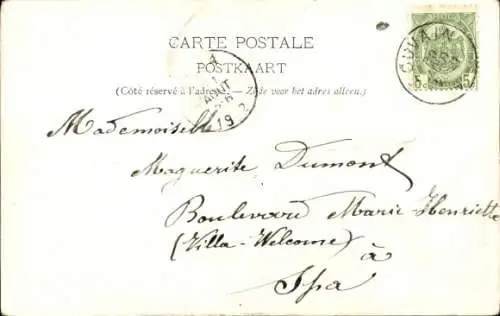 CARTE POSTALE
POSTKAART
(Côté réservé à l'adresse. — Zijde voor het adres alleen.)
AOUT
19 2
5 5
Mademoiselle
Maguerite Dumont
Boulevard Marie-Henriette
(Villa-Welcome)
à
Spa